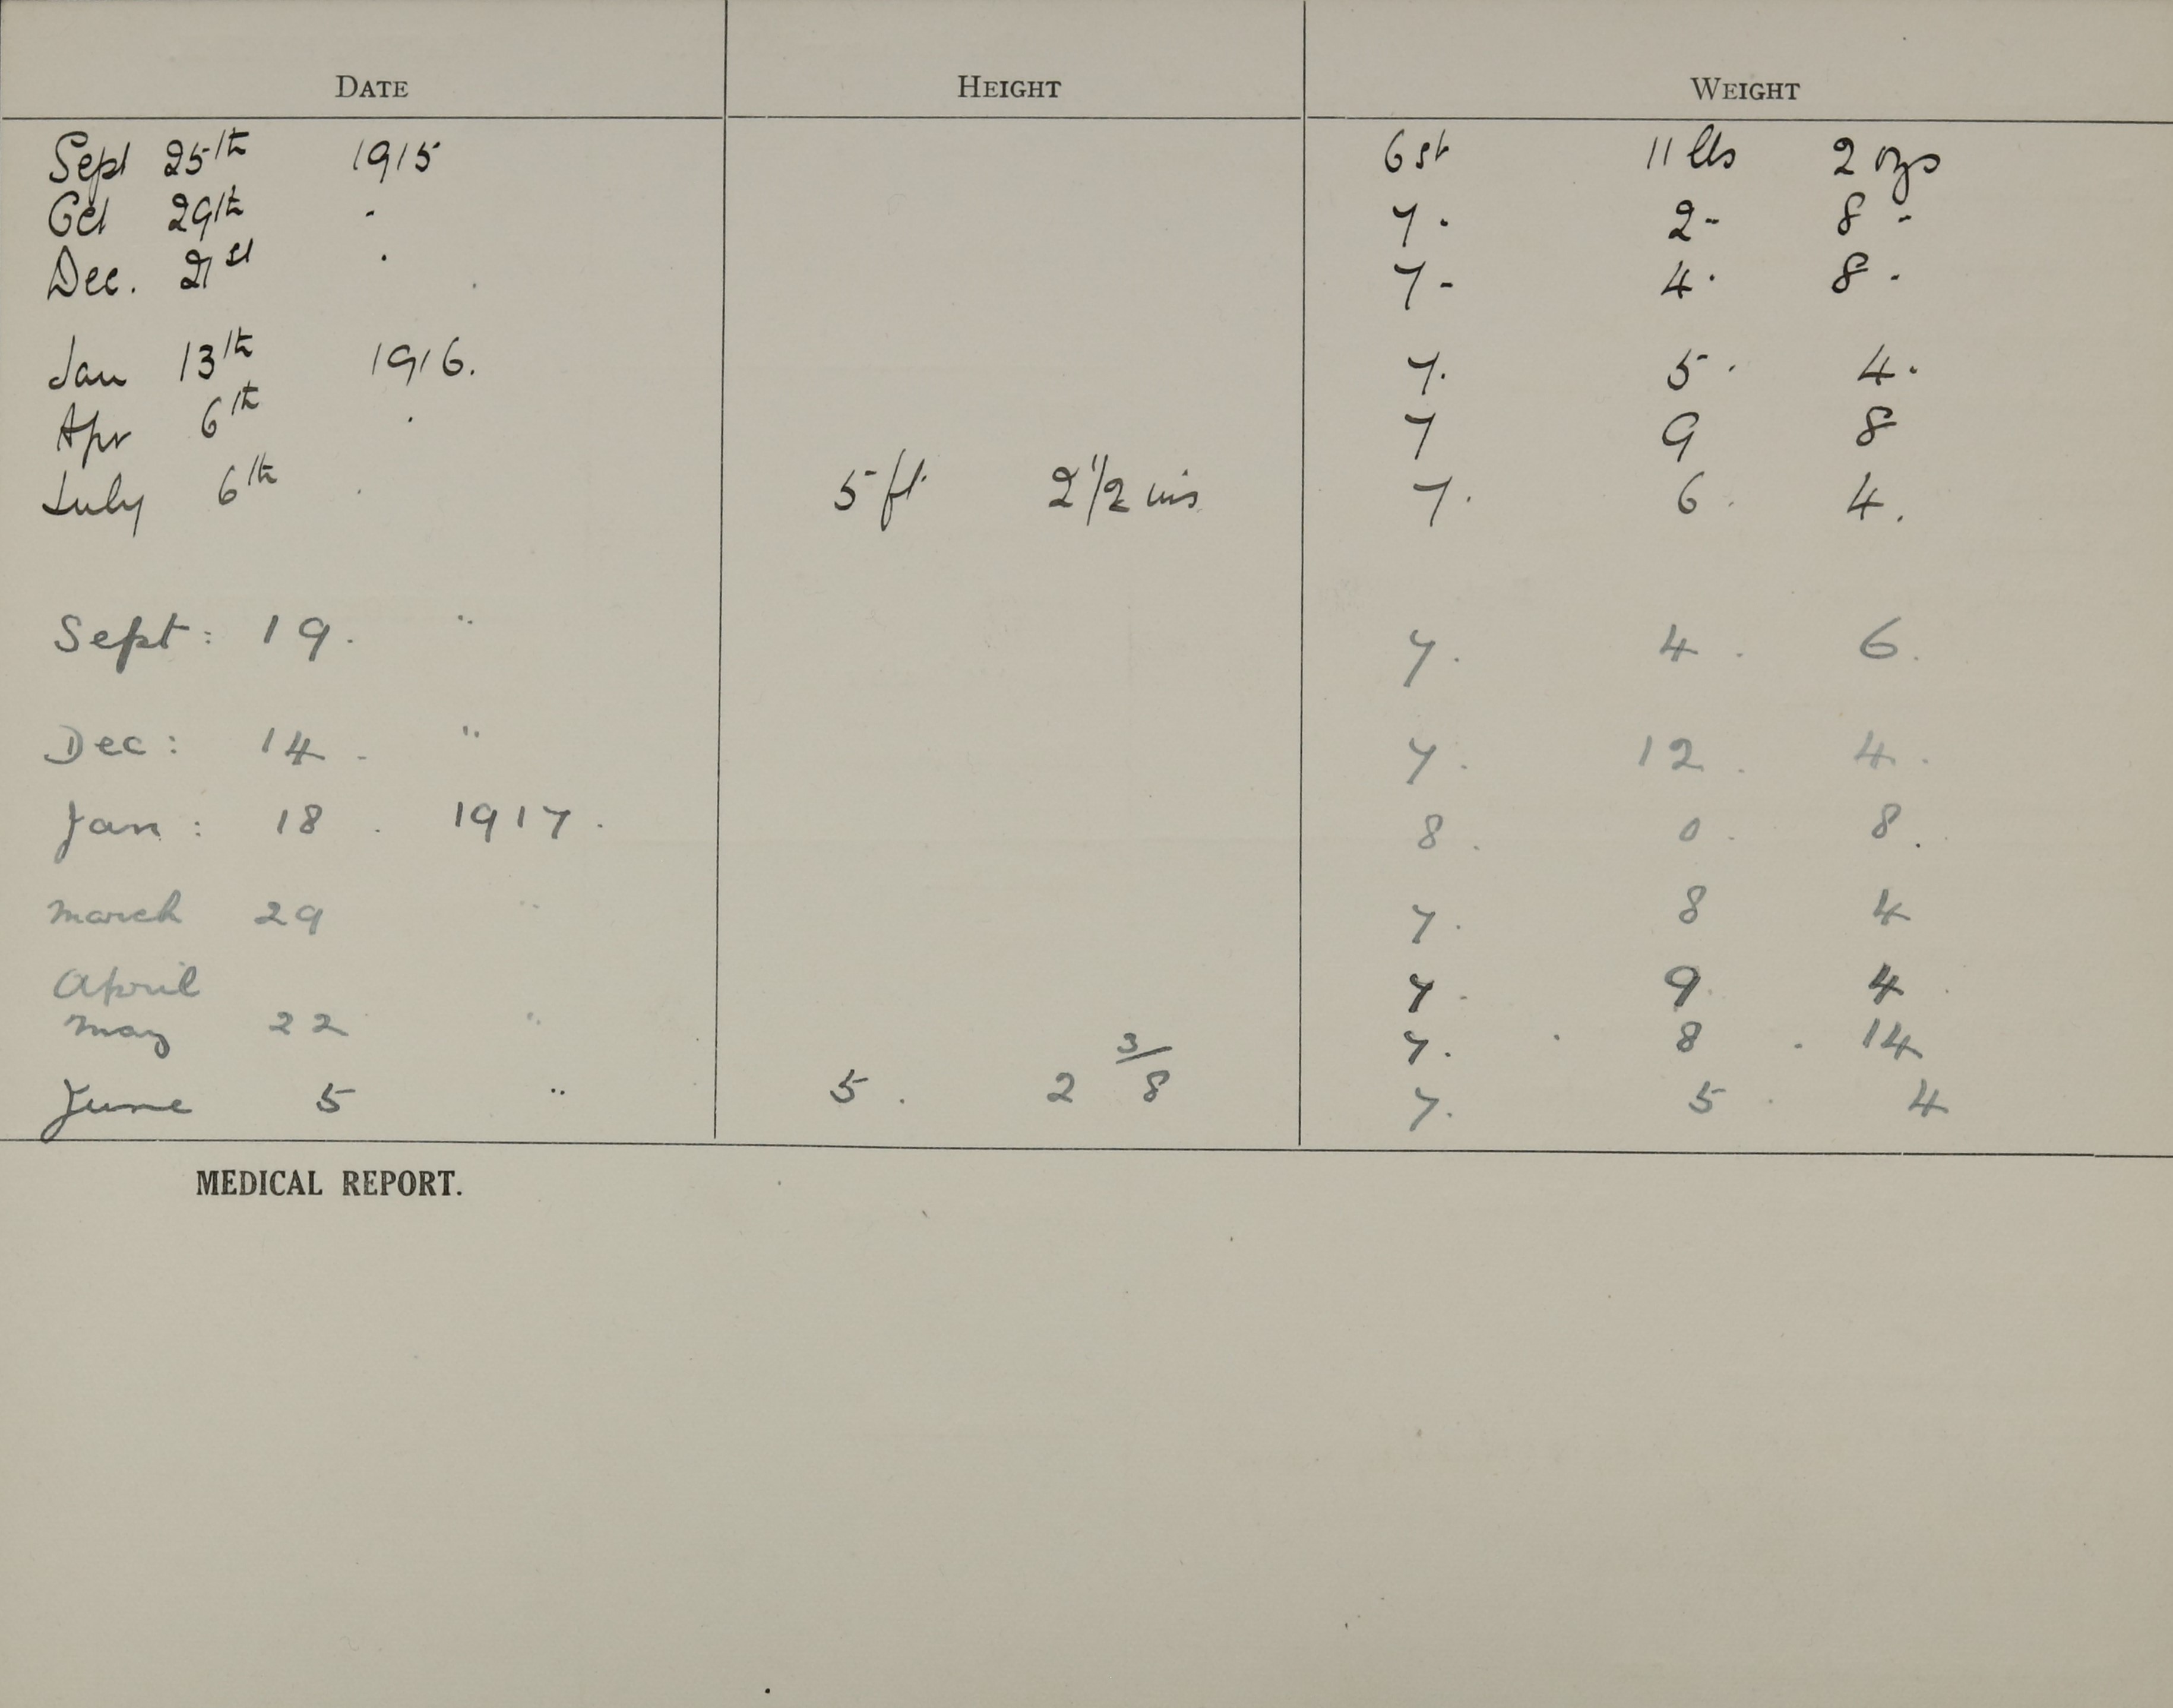 DATE HEIGHT WEIGHT
Sept 25th 1915 6 st 11 lbs 2 ozs
Oct 29th - 7. 2- 8 -
Dec. 21st . 7- 4. 8.
Jan 13th 1916. 7. 5. 4.
Apr 6th . 7 9 8
July 6th . 5 ft 2 1/2 ins 7. 6. 4.
Sept: 19. " 7. 4. 6.
Dec: 14. " 7. 12. 4.
Jan: 18. 1917. 8. 0. 8.
March 29 " 7. 8 4
April 7. 9. 4.
May 22 " 7. 8. 14
June 5 " 5. 2 3/8 7. 5. 4
MEDICAL REPORT.